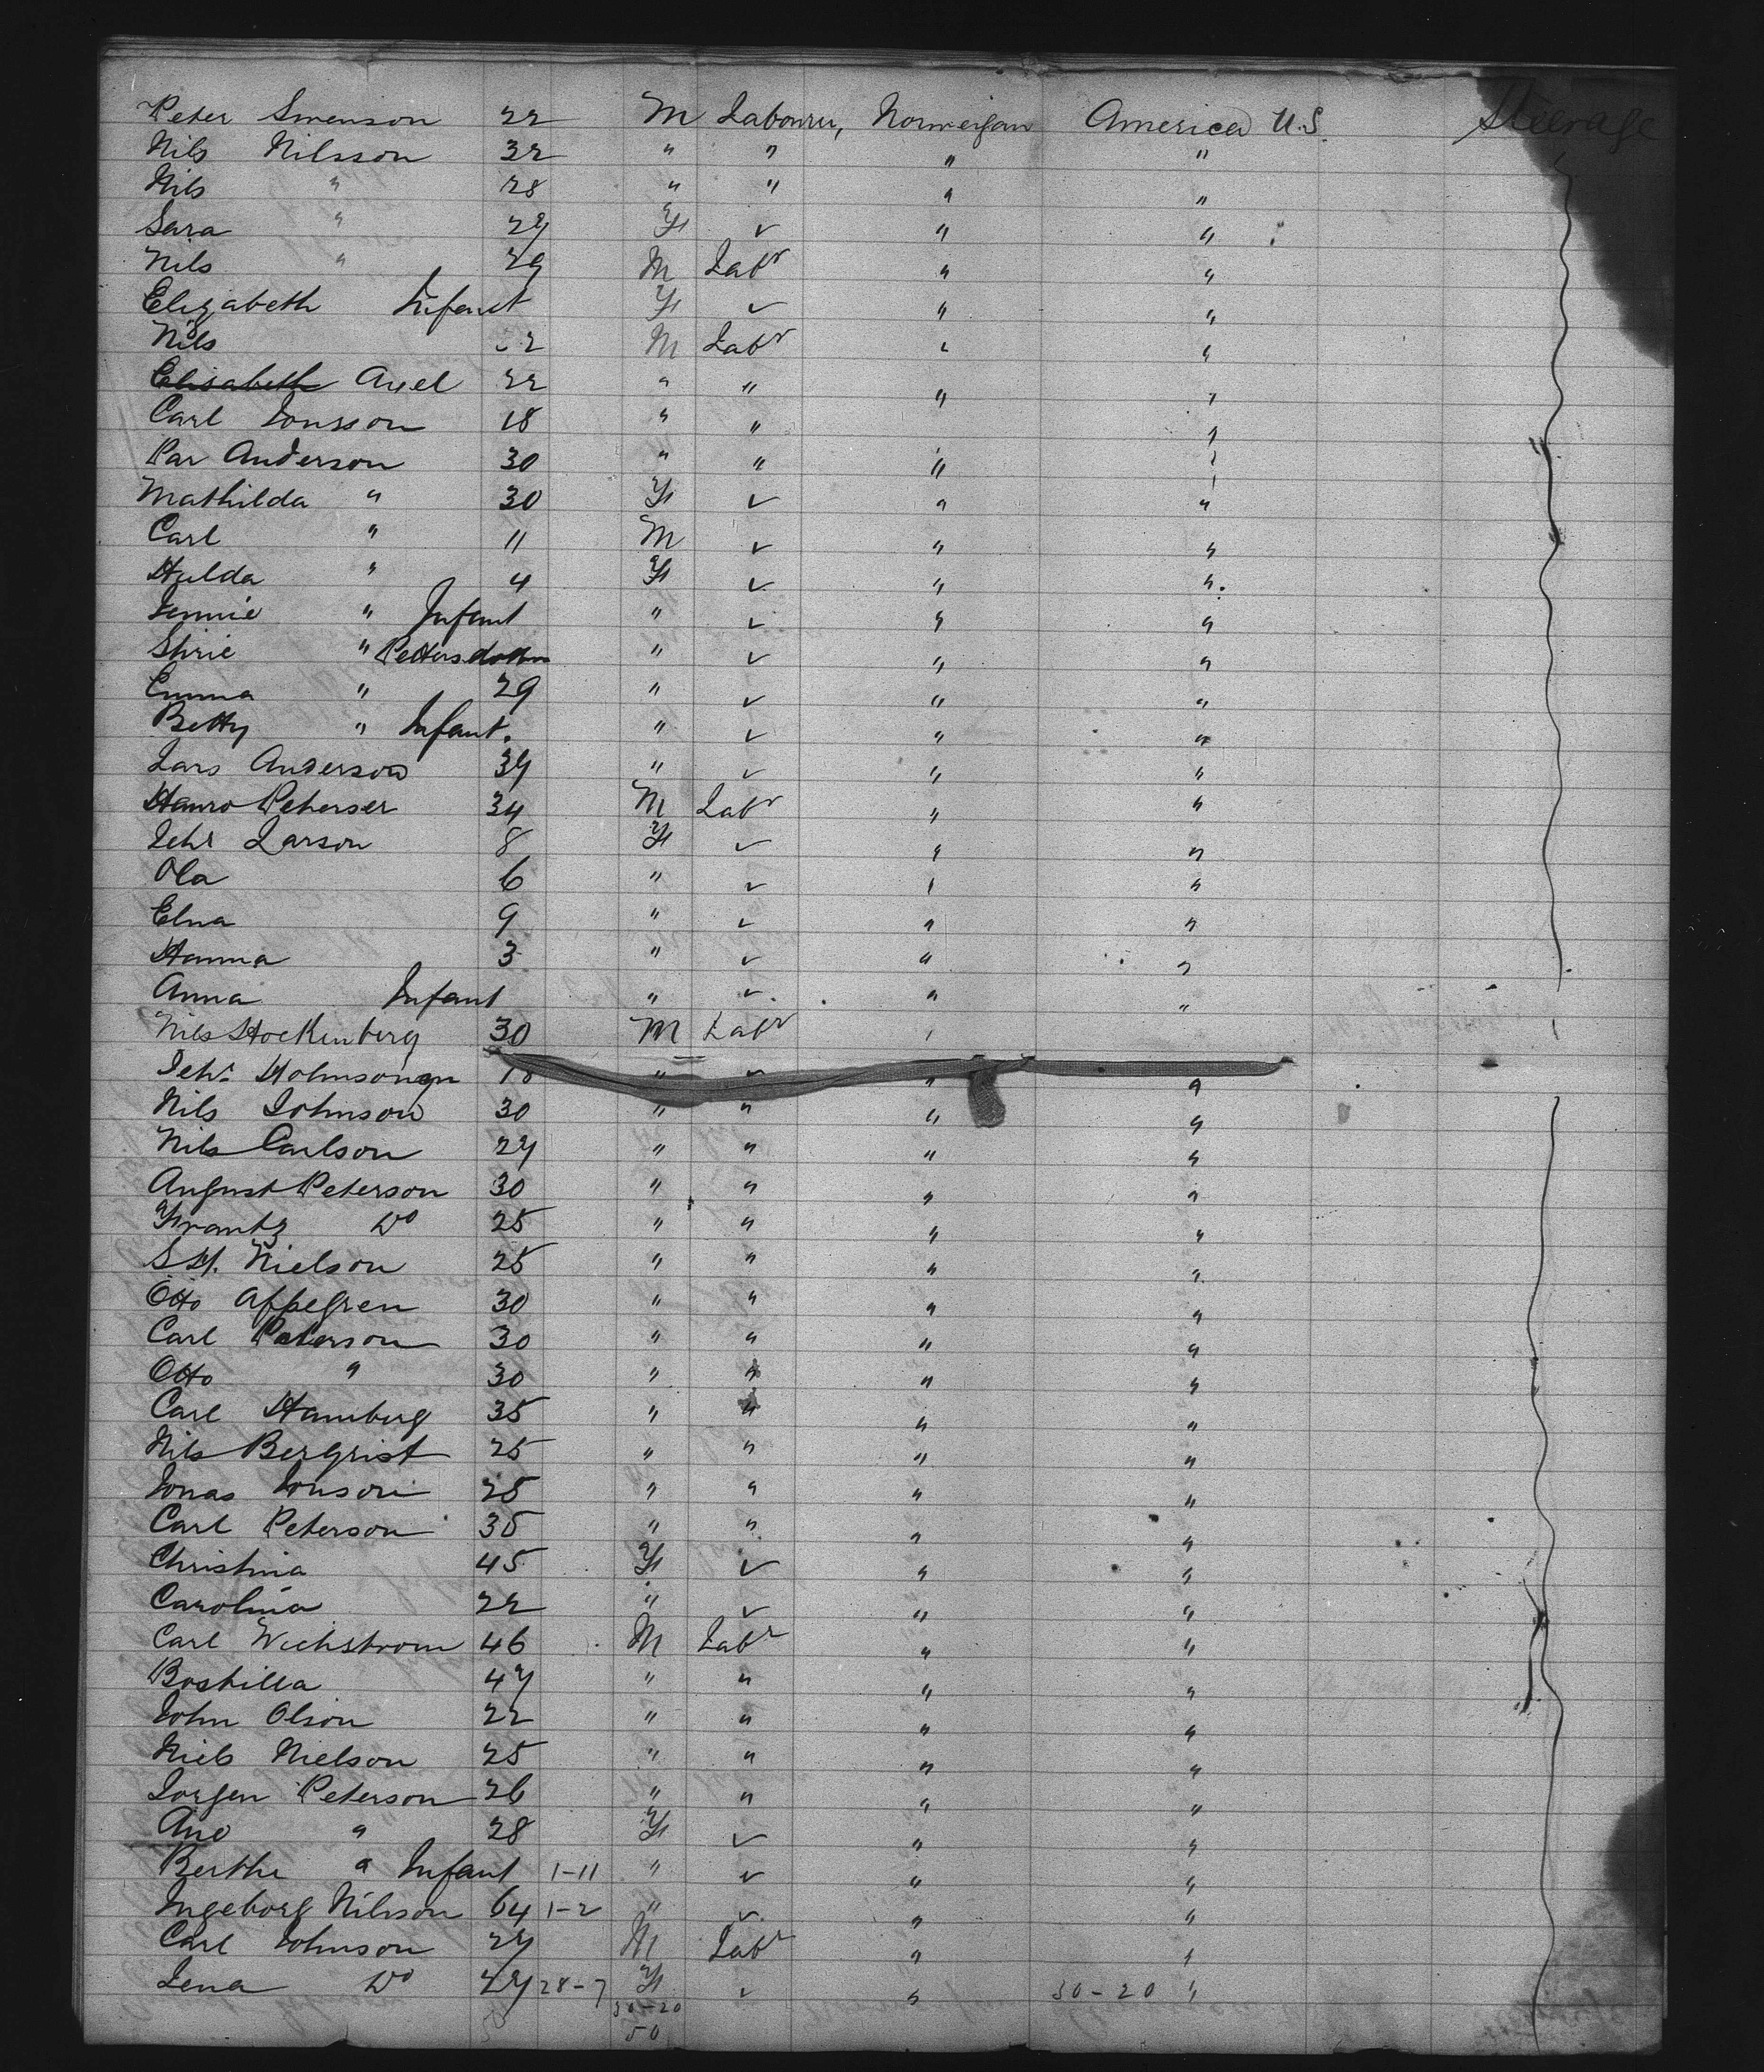 Peter Swenson 22 M Labourer, Norweigan America U.S. Steerage
Nils Nilsson 32 " " " "
Nils " 28 " " " "
Sara " 27 F ✓ " "
Nils " 29 M Labr " "
Elizabeth Infant F ✓ " "
Nils M Labr " "
Elisabeth Axel 22 " " " "
Carl Jonsson 18 " " " "
Par Anderson 30 " " " "
Mathilda " 30 F ✓ " "
Carl " 11 M ✓ " "
Hulda " 4 F ✓ " "
Jennie " Infant " ✓ " "
" " ✓ " "
Emma " 29 " ✓ " "
Betty " Infant. " ✓ " "
Lars Anderson 37 " ✓ " "
34 M Labr " "
Larson 8 F ✓ " "
Ola 6 " ✓ " "
Elna 9 " ✓ " "
Hanna 3 " ✓ " "
Anna Infant " ✓ " "
Nils Hockenberg 30 M Labr "
" " " "
Nils Johnson 30 " " " "
Nils Carlson 27 " " " "
August Peterson 30 " " " "
Frantz Do 25 " " " "
S H. Nielson 25 " " " "
Otto Appelgren 30 " " " "
Carl Peterson 30 " " " "
Otto " 30 " " " "
Carl Hamburg 35 " " " "
Nils Bergrist 25 " " " "
Jonas Jonson 25 " " " "
Carl Peterson 35 " " " "
Christina 45 F ✓ " "
Carolina 22 " ✓ " "
Carl Wichstrom 46 M Labr " "
Boshilla 47 " " " "
John Olson 22 " " " "
Niels Nielson 25 " " " "
Jorgen Peterson 26 " " " "
Ane " 28 F ✓ " "
Berthe " Infant 1-11 " ✓ " "
Ingeborg Nilsson 64 1-2 " ✓ " "
Carl Johnson 27 M Labr " "
Lena Do 27 28-7 F ✓ " 30-20 "
30-20
50